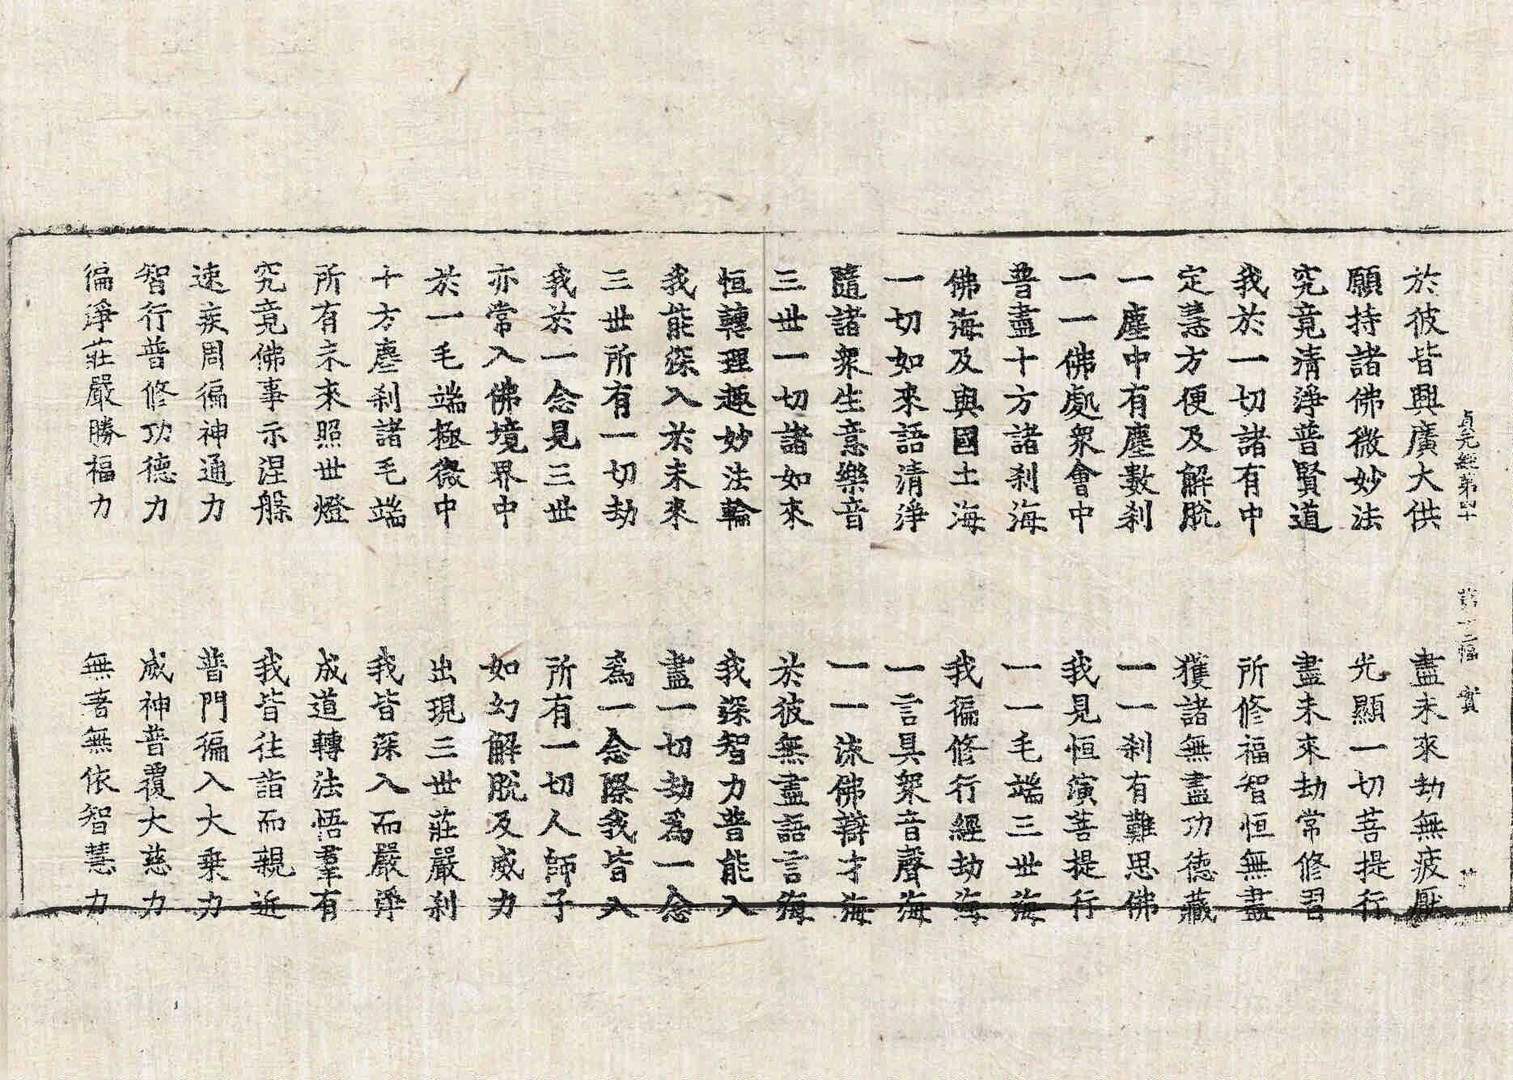 貞元經第四十　第十二幅　實
於彼皆興廣大供　盡未來劫無疲厭
願持諸佛微妙法　光顯一切菩提行
究竟清淨普賢道　盡未來劫常修習
我於一切諸有中　所修福智恒無盡
定慧方便及解脫　獲諸無盡功德藏
一塵中有塵數刹　一一刹有難思佛
一一佛處眾會中　我見恒演菩提行
普盡十方諸刹海　一一毛端三世海
佛海及與國土海　我徧修行經劫海
一切如來語清淨　一言具眾音聲海
隨諸眾生意樂音　一一流佛辯才海
三世一切諸如來　於彼無盡語言海
恒轉理趣妙法輪　我深智力普能入
我能深入於未來　盡一切劫為一念
三世所有一切劫　為一念際我皆入
我於一念見三世　所有一切人師子
亦常入佛境界中　如幻解脫及威力
於一毛端極微中　出現三世莊嚴刹
十方塵刹諸毛端　我皆深入而嚴淨
所有未來照世燈　成道轉法悟羣有
究竟佛事示涅槃　我皆往詣而親近
速疾周徧神通力　普門徧入大乘力
智行普修功德力　威神普覆大慈力
徧淨莊嚴勝福力　無著無依智慧力